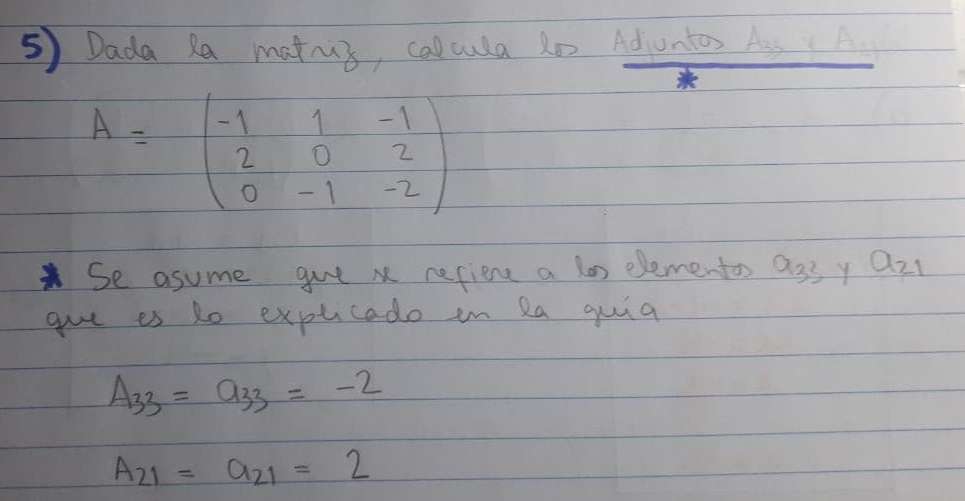 5) Dada la matriz, calcula los Adjuntos A33 y
*
A = (-1 1 -1
2 0 2
0 -1 -2)
* Se asume que se refiere a los elementos a33 y a21
que es lo explicado en la guía
A33 = a33 = -2
A21 = a21 = 2